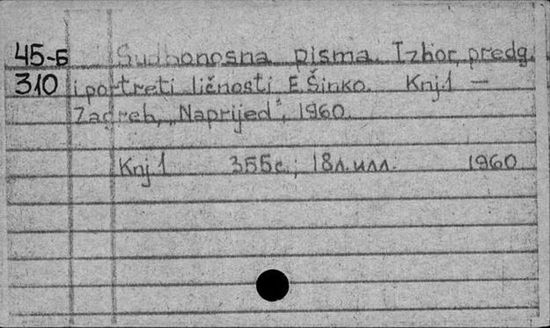 45-Б Sudbonosna pisma. Izbor, predg.
310 i portreti ličnosti E.Šinko. Knj.1 —
Zagreb, „Naprijed", 1960.
Knj.1 355с.; 18л.илл. 1960